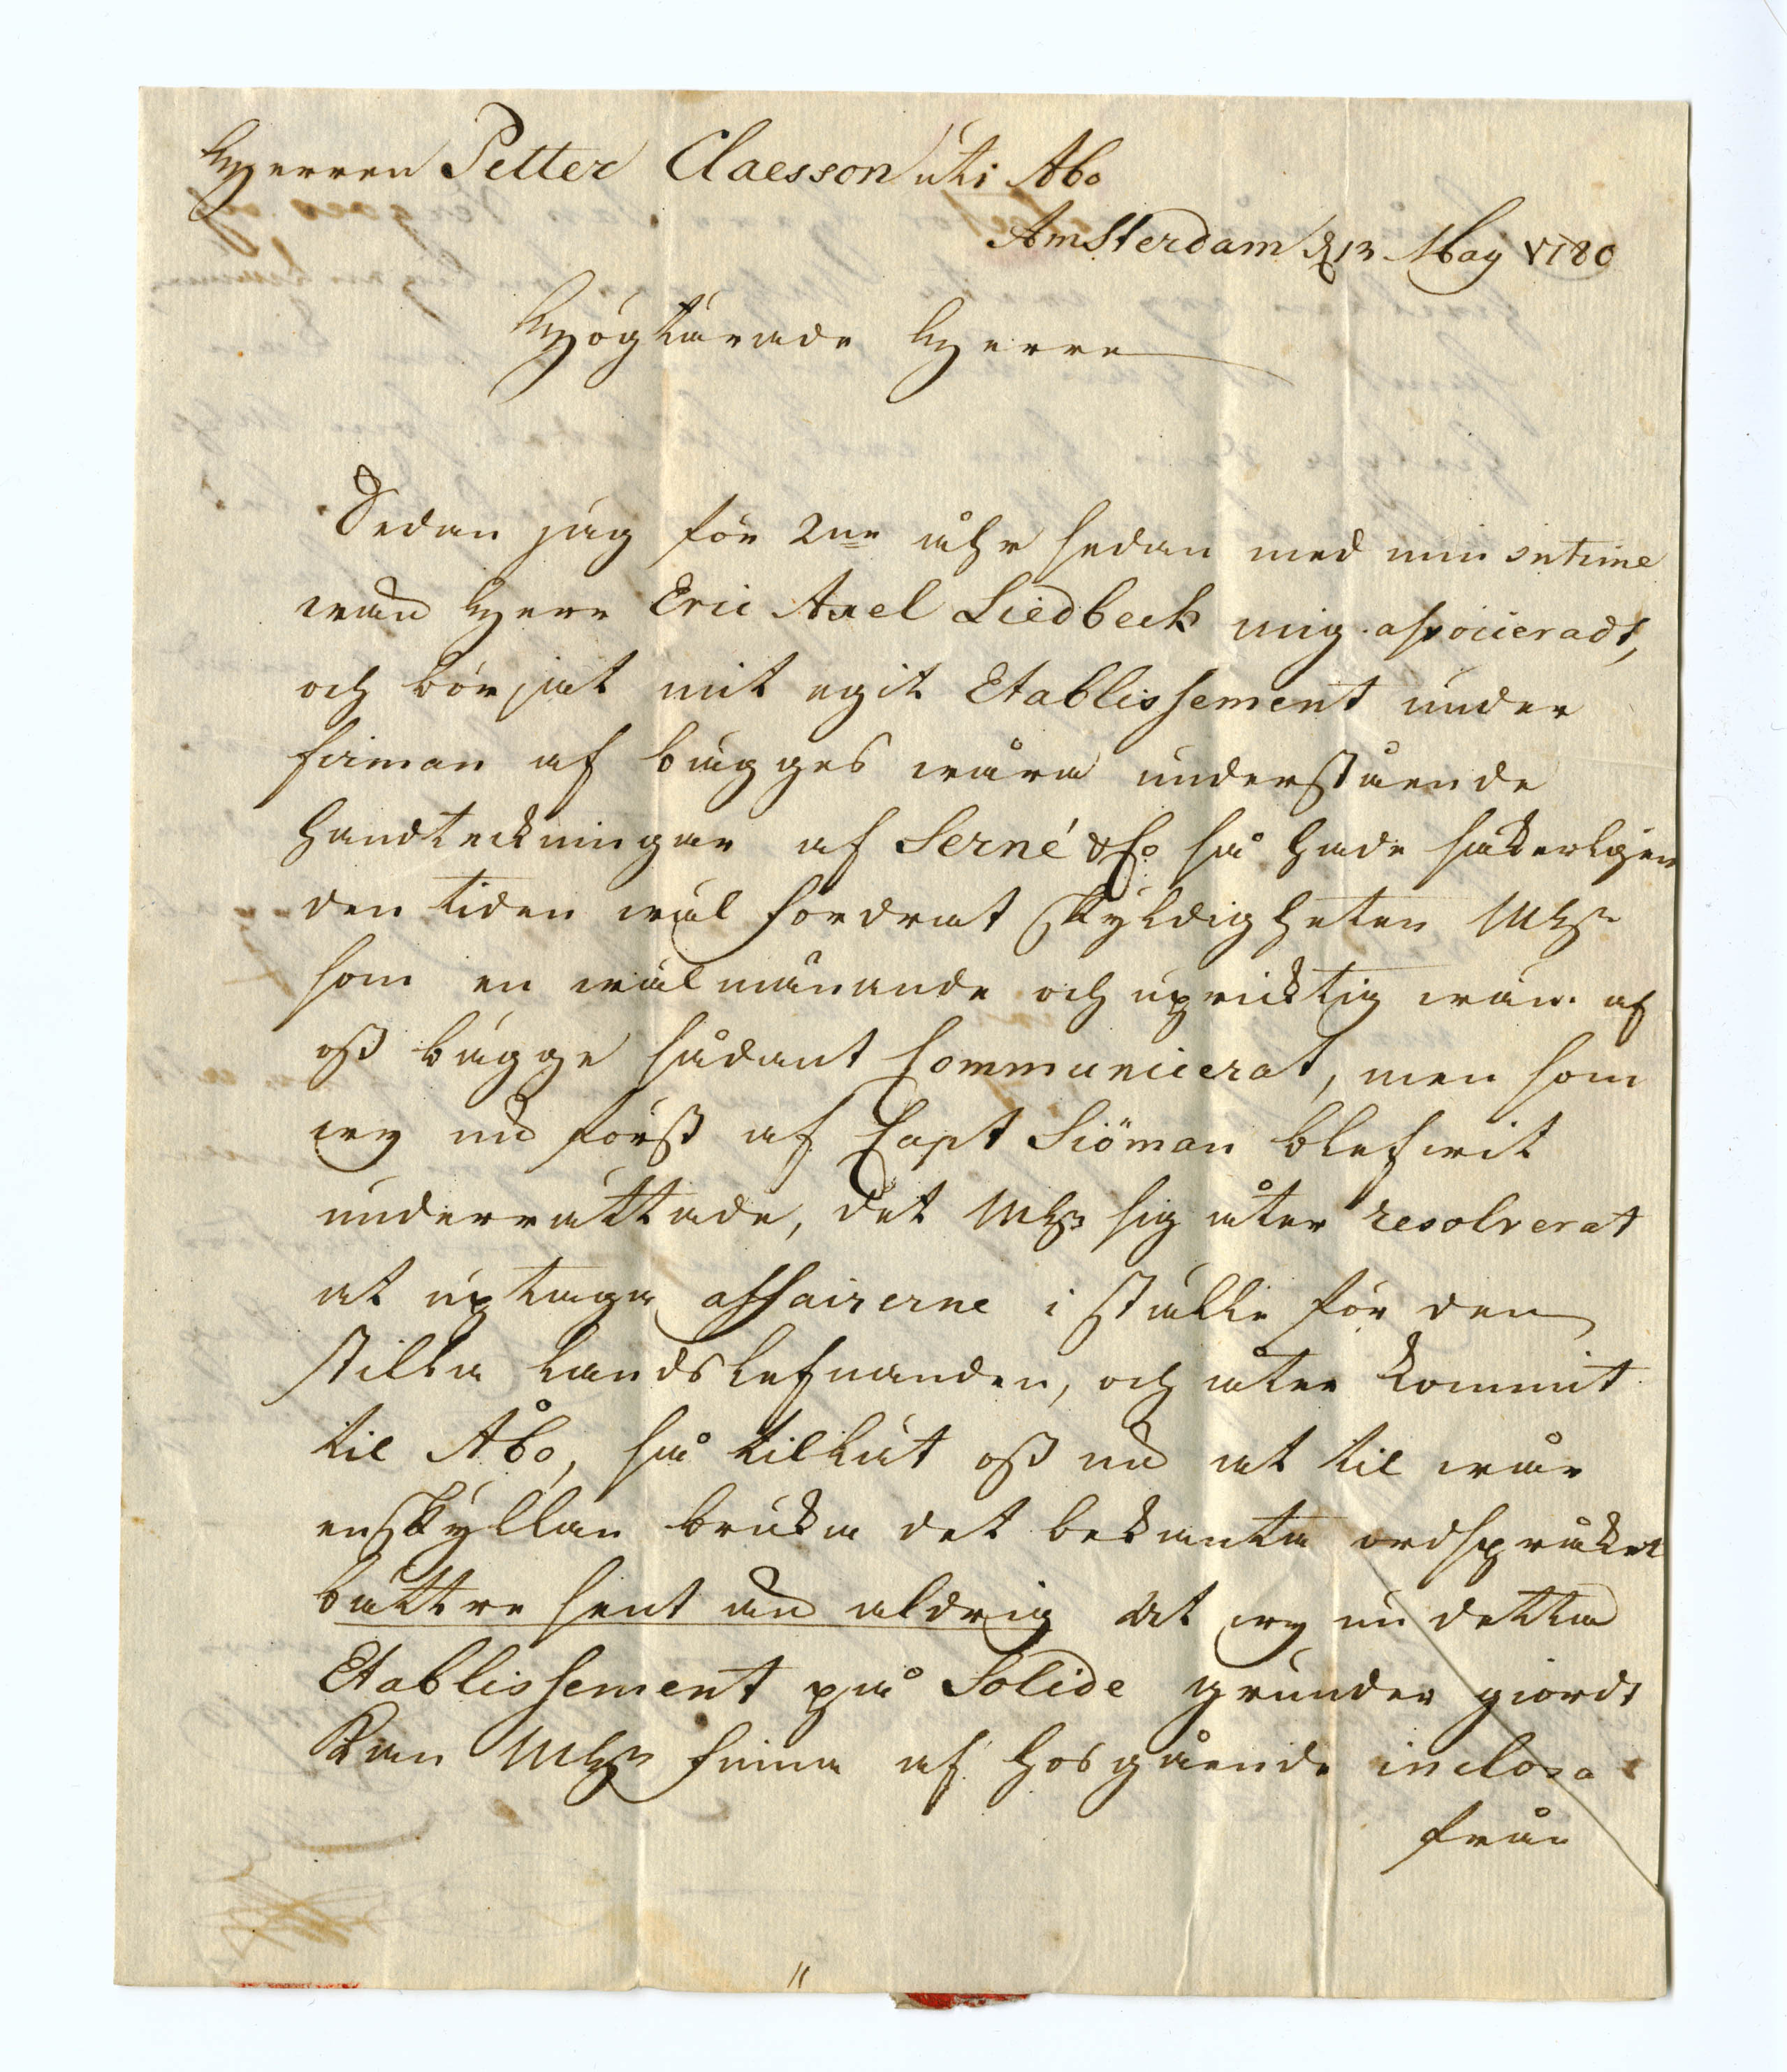 Herren Petter Claesson uti Abo
Amsterdam d 13 May 1780
Högtärade Herre
Sedan jag för 2ne åhr sedan med min intime
wän Herr Eric Axel Liedbeck mig associeradt,
och börjat mit egit Etablissement under
firman af bägges wåra understående
handteckningar af Serné & Co så hade säkerligen
den tiden wäl fordrat skyldigheten MHr
som en wälmenande och upricktig wän af
oss bägge sådant Communicerat, men som
wy nu först af Capt Siöman blefwit
underrättade, det MHr sig åter resolverat
at uptaga affairerne i ställe för den
stilla landslefnanden, och åter kommit
til Åbo, så tillåt oss nu at til wår
enskyllan bruka det bekanta ordspråket
bättre sent än aldrig At wy nu detta
Etablissement på Solide grunder giordt
kan MHr finna af hosgående inclosa
från